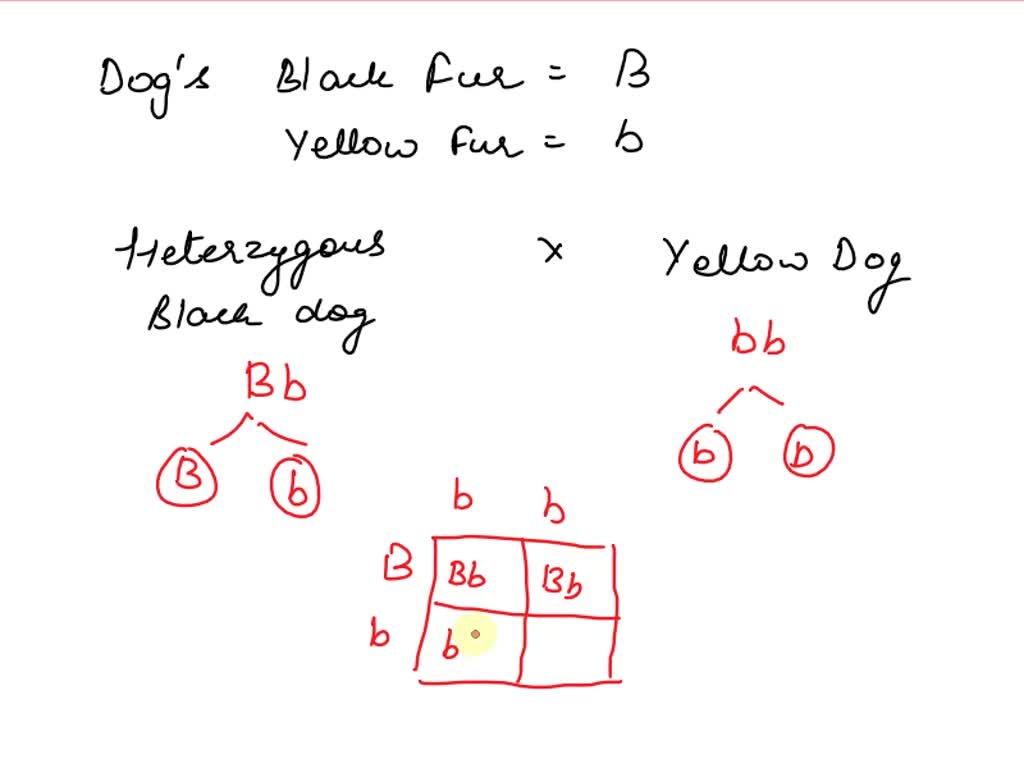 Dog's Black Fur = B
Yellow Fur = b
Heterzygous x Yellow Dog
Black dog
bb
Bb
B b b b
b b
B Bb Bb
b b